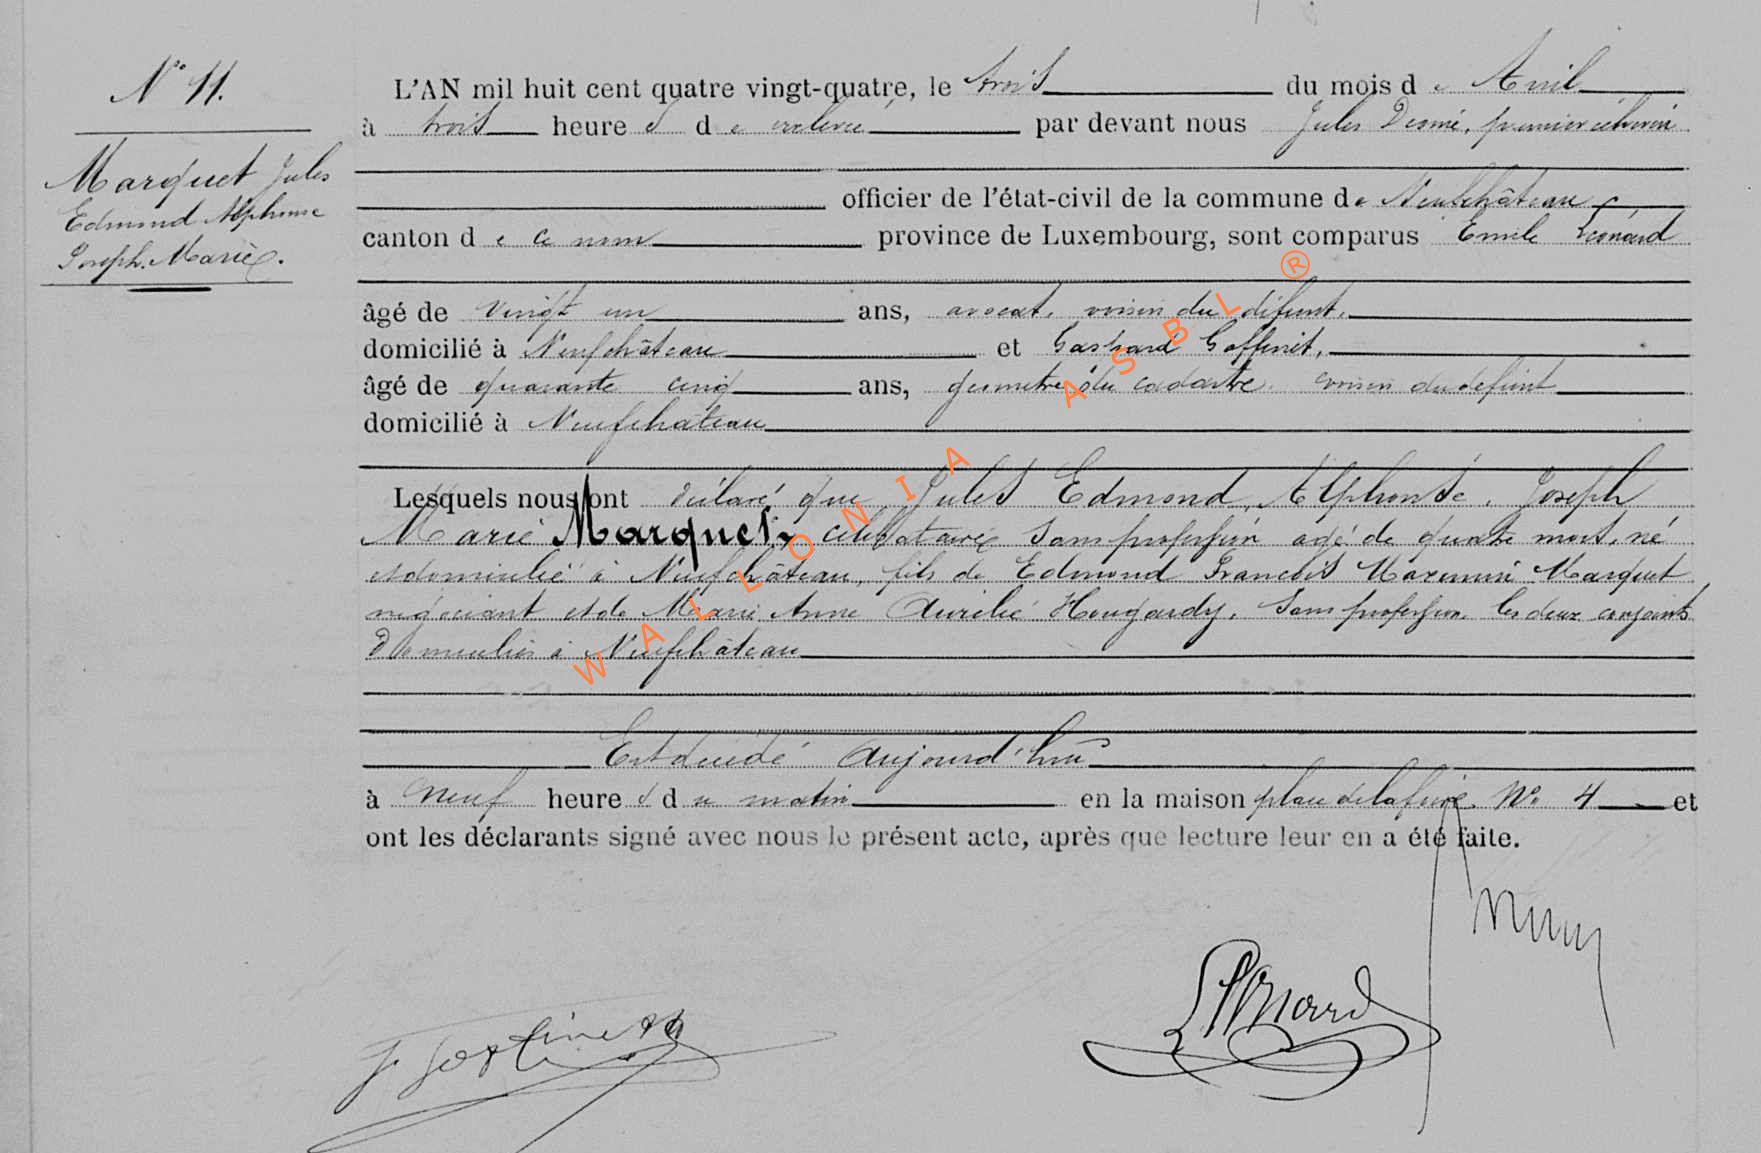 N° 11.
Marquet Jules
Edmond Alphonse
Joseph Marie.
L'AN mil huit cent quatre vingt-quatre, le trois du mois de Avril
à trois heures de relevée par devant nous Jules premier échevin
officier de l'état-civil de la commune de Neufchâteau
canton de ce nom province de Luxembourg, sont comparus Emile Léonard
âgé de vingt un ans, avocat, voisin du défunt,
domicilié à Neufchâteau et Gaspard Goffinet,
âgé de quarante cinq ans, géometre du cadastre voisin du defunt
domicilié à Neufchâteau
Lesquels nous ont déclaré que Jules Edmond, Alphonse, Joseph
Marie Marquet, célibataire sans profession agé de quatre mois, né
et domicilié à Neufchâteau, fils de Edmond François Marquet
négociant et de Marie Anne Aurélie Hougardy, sans profession les deux conjoints
Domiciliés à Neufchâteau
Est décédé aujourd'hui
à neuf heures du matin en la maison place de la foire N° 4 et
ont les déclarants signé avec nous le présent acte, après que lecture leur en a été faite.
WALLONIA ASBL ®